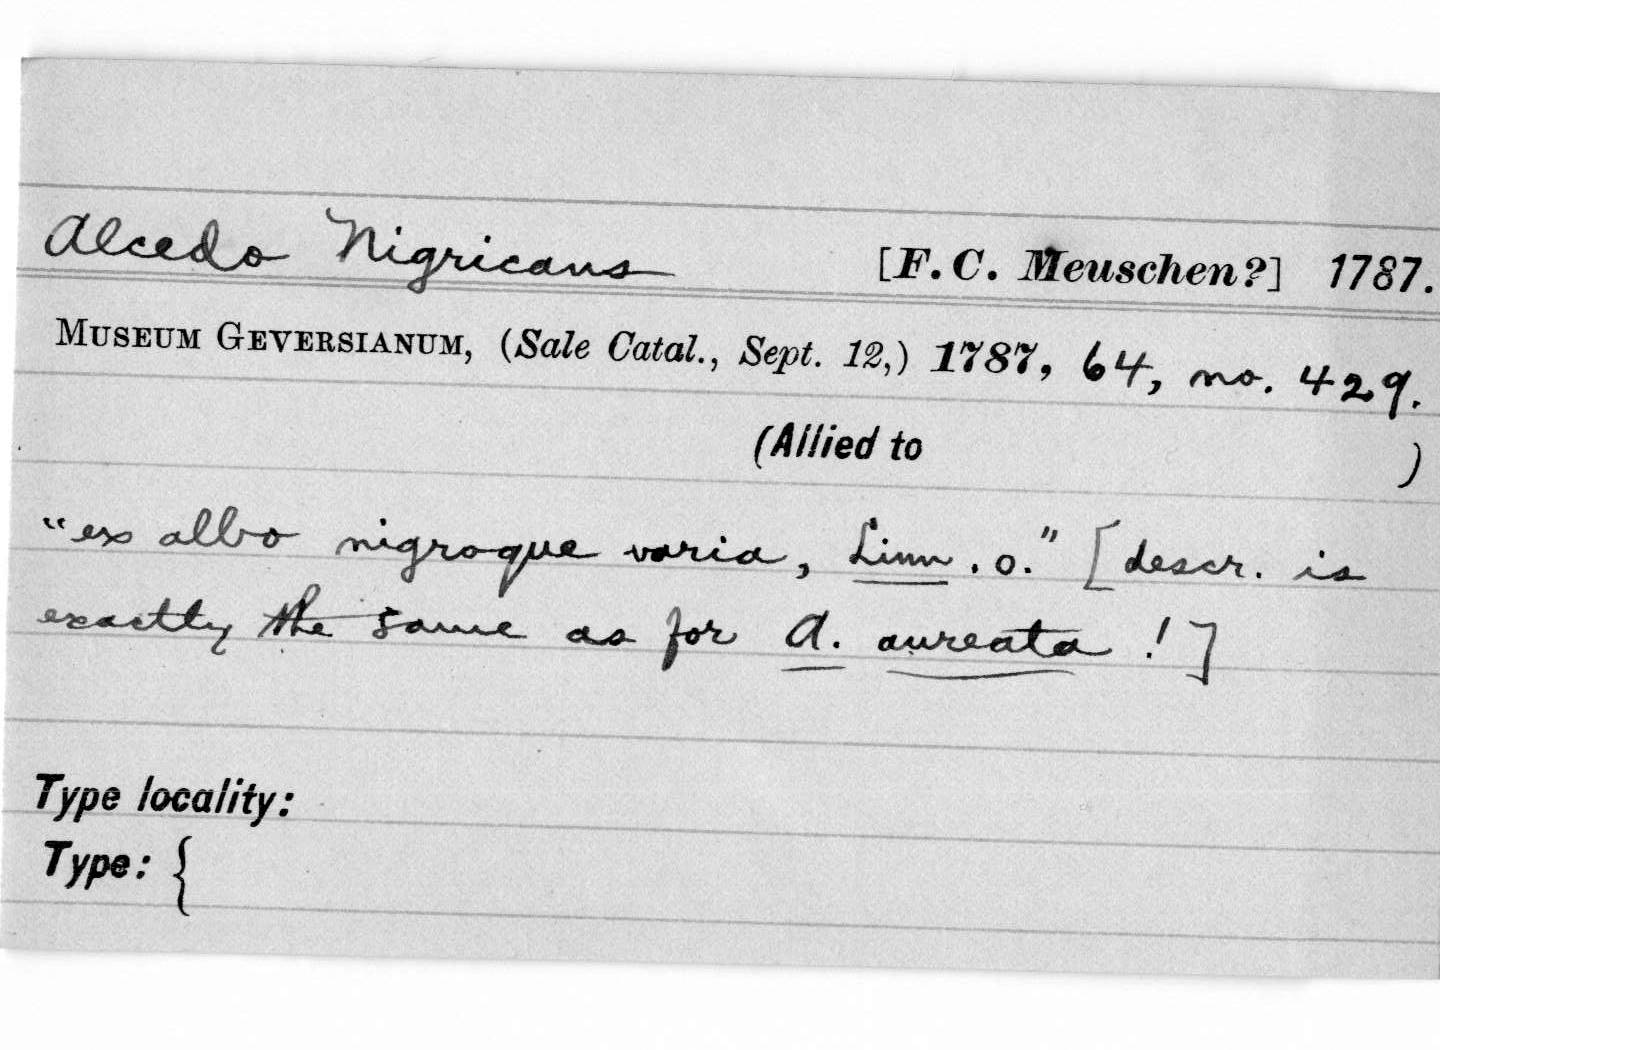 Alcedo Nigricans [F. C. Meuschen?] 1787.
Museum Geversianum, (Sale Catal., Sept. 12,) 1787, 64, no. 429.
(Allied to )
"ex albo nigroque varia, Linn. o." [descr. is
exactly the same as for A. aureata!]
Type locality:
Type: {